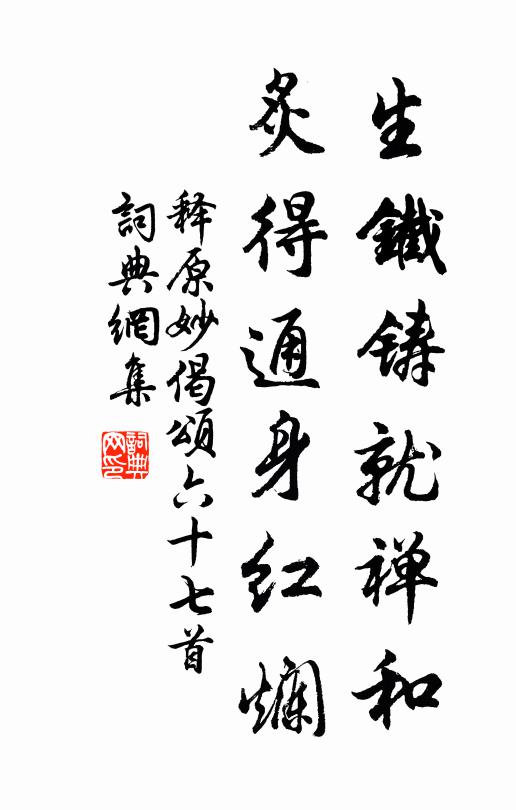 生鐵鋳就禅和
炙得通身紅爛
释原妙偈頌六十七首
詞典網集
詞典网印